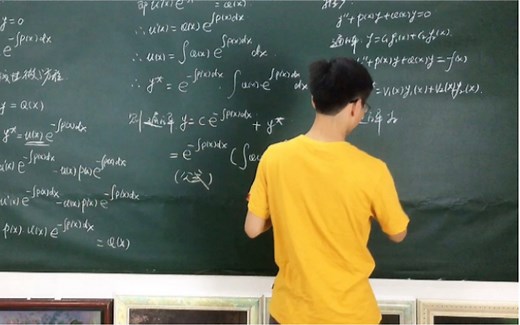 y=0
e^{-∫p(x)dx}
y = Q(x)
y* = u(x) e^{-∫p(x)dx}
u'(x) e^{-∫p(x)dx} - u(x) p(x) e^{-∫p(x)dx}
u'(x) e^{-∫p(x)dx} - u(x) p(x) e^{-∫p(x)dx}
p(x) · u(x) e^{-∫p(x)dx} = Q(x)
即 u'(x) e = Q(x)
∴ u'(x) = Q(x) e^{∫p(x)dx}
∴ u(x) = ∫Q(x) e^{∫p(x)dx} dx
∴ y* = e^{-∫p(x)dx} · ∫Q(x)·e^{∫p(x)dx} dx
则 通解 y = C e^{-∫p(x)dx} + y*
= e^{-∫p(x)dx} (∫Q(x)
(公式)
y''+p(x)y'+Q(x)y=0
通解: y=C₁y₁(x)+C₂y₂(x)
y''+p(x)y'+Q(x)y=f(x)
=V₁(x)y₁(x)+V₂(x)y₂(x).